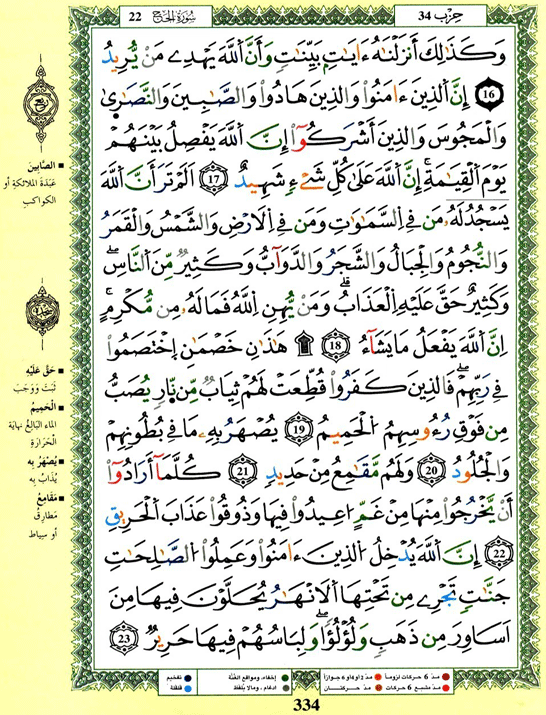 حِزْب 34
سُورَةُ الْحَجِّ 22
وَكَذَٰلِكَ أَنزَلْنَٰهُ ءَايَٰتِۢ بَيِّنَٰتٖ وَأَنَّ اَللَّهَ يَهْدِے مَنْ يُّرِيدُ
16 إِنَّ اَلذِينَ ءَامَنُوا وَالذِينَ هَادُوا وَالصَّٰبِينَ وَالنَّصَٰرَىٰ
وَالْمَجُوسَ وَالذِينَ أَشْرَكُوٓا إِنَّ اَللَّهَ يَفْصِلُ بَيْنَهُمْ
يَوْمَ اَلْقِيَٰمَةِ إِنَّ اَللَّهَ عَلَىٰ كُلِّ شَےْءٖ شَهِيدٌ 17 اَلَمْ تَرَ أَنَّ اَللَّهَ
يَسْجُدُ لَهُۥ مَن فِے اِلسَّمَٰوَٰتِ وَمَن فِے اِلَارْضِ وَالشَّمْسُ وَالْقَمَرُ
وَالنُّجُومُ وَالْجِبَالُ وَالشَّجَرُ وَالدَّوَآبُّ وَكَثِيرٞ مِّنَ اَلنَّاسِ
وَكَثِيرٌ حَقَّ عَلَيْهِ اِلْعَذَابُ وَمَنْ يُّهِنِ اِللَّهُ فَمَا لَهُۥ مِن مُّكْرِمٍ
اِنَّ اَللَّهَ يَفْعَلُ مَا يَشَآءُ 18 ۩ هَٰذَٰنِ خَصْمَٰنِ اِخْتَصَمُوا
فِے رَبِّهِمْ فَالذِينَ كَفَرُوا قُطِّعَتْ لَهُمْ ثِيَابٞ مِّن نّارٖ يُصَبُّ
مِن فَوْقِ رُءُوسِهِمُ اَلْحَمِيمُ 19 يُصْهَرُ بِهِۦ مَا فِے بُطُونِهِمْ
وَالْجُلُودُ 20 وَلَهُم مَّقَٰمِعُ مِنْ حَدِيدٖ 21 كُلَّمَآ أَرَادُوٓا
أَنْ يَّخْرُجُوا مِنْهَا مِنْ غَمٍّ اُعِيدُوا فِيهَا وَذُوقُوا عَذَابَ اَلْحَرِيقِ
22 إِنَّ اَللَّهَ يُدْخِلُ اُلذِينَ ءَامَنُوا وَعَمِلُوا اُلصَّٰلِحَٰتِ
جَنَّٰتٖ تَجْرِے مِن تَحْتِهَا اَلَانْهَٰرُ يُحَلَّوْنَ فِيهَا مِنَ
اَسَاوِرَ مِن ذَهَبٖ وَلُؤْلُؤاٗ وَلِبَاسُهُمْ فِيهَا حَرِيرٞ 23
ربع
■ الصَّابِينَ
عَبَدَةَ المَلائكةِ أو
الكواكبِ
سجدة
■ حَقَّ عَلَيْهِ
ثَبَتَ وَوَجَبَ
■ الْحَمِيمُ
الماء البَالِغُ نهايَة
الْحَرَارَةِ
■ يُصْهَرُ بِهِ
يُذَابُ به
■ مَقَامِعُ
مَطارِقُ
أو سِيَاطٌ
مدّ 6 حركات لزوماً
مدّ 2 أو 4 أو 6 جوازاً
مدّ مشبع 6 حركات
مدّ حركتان
إخفاء، ومواقع الغُنَّة
ادغام، وما لا يُلفظ
تفخيم
قلقلة
334